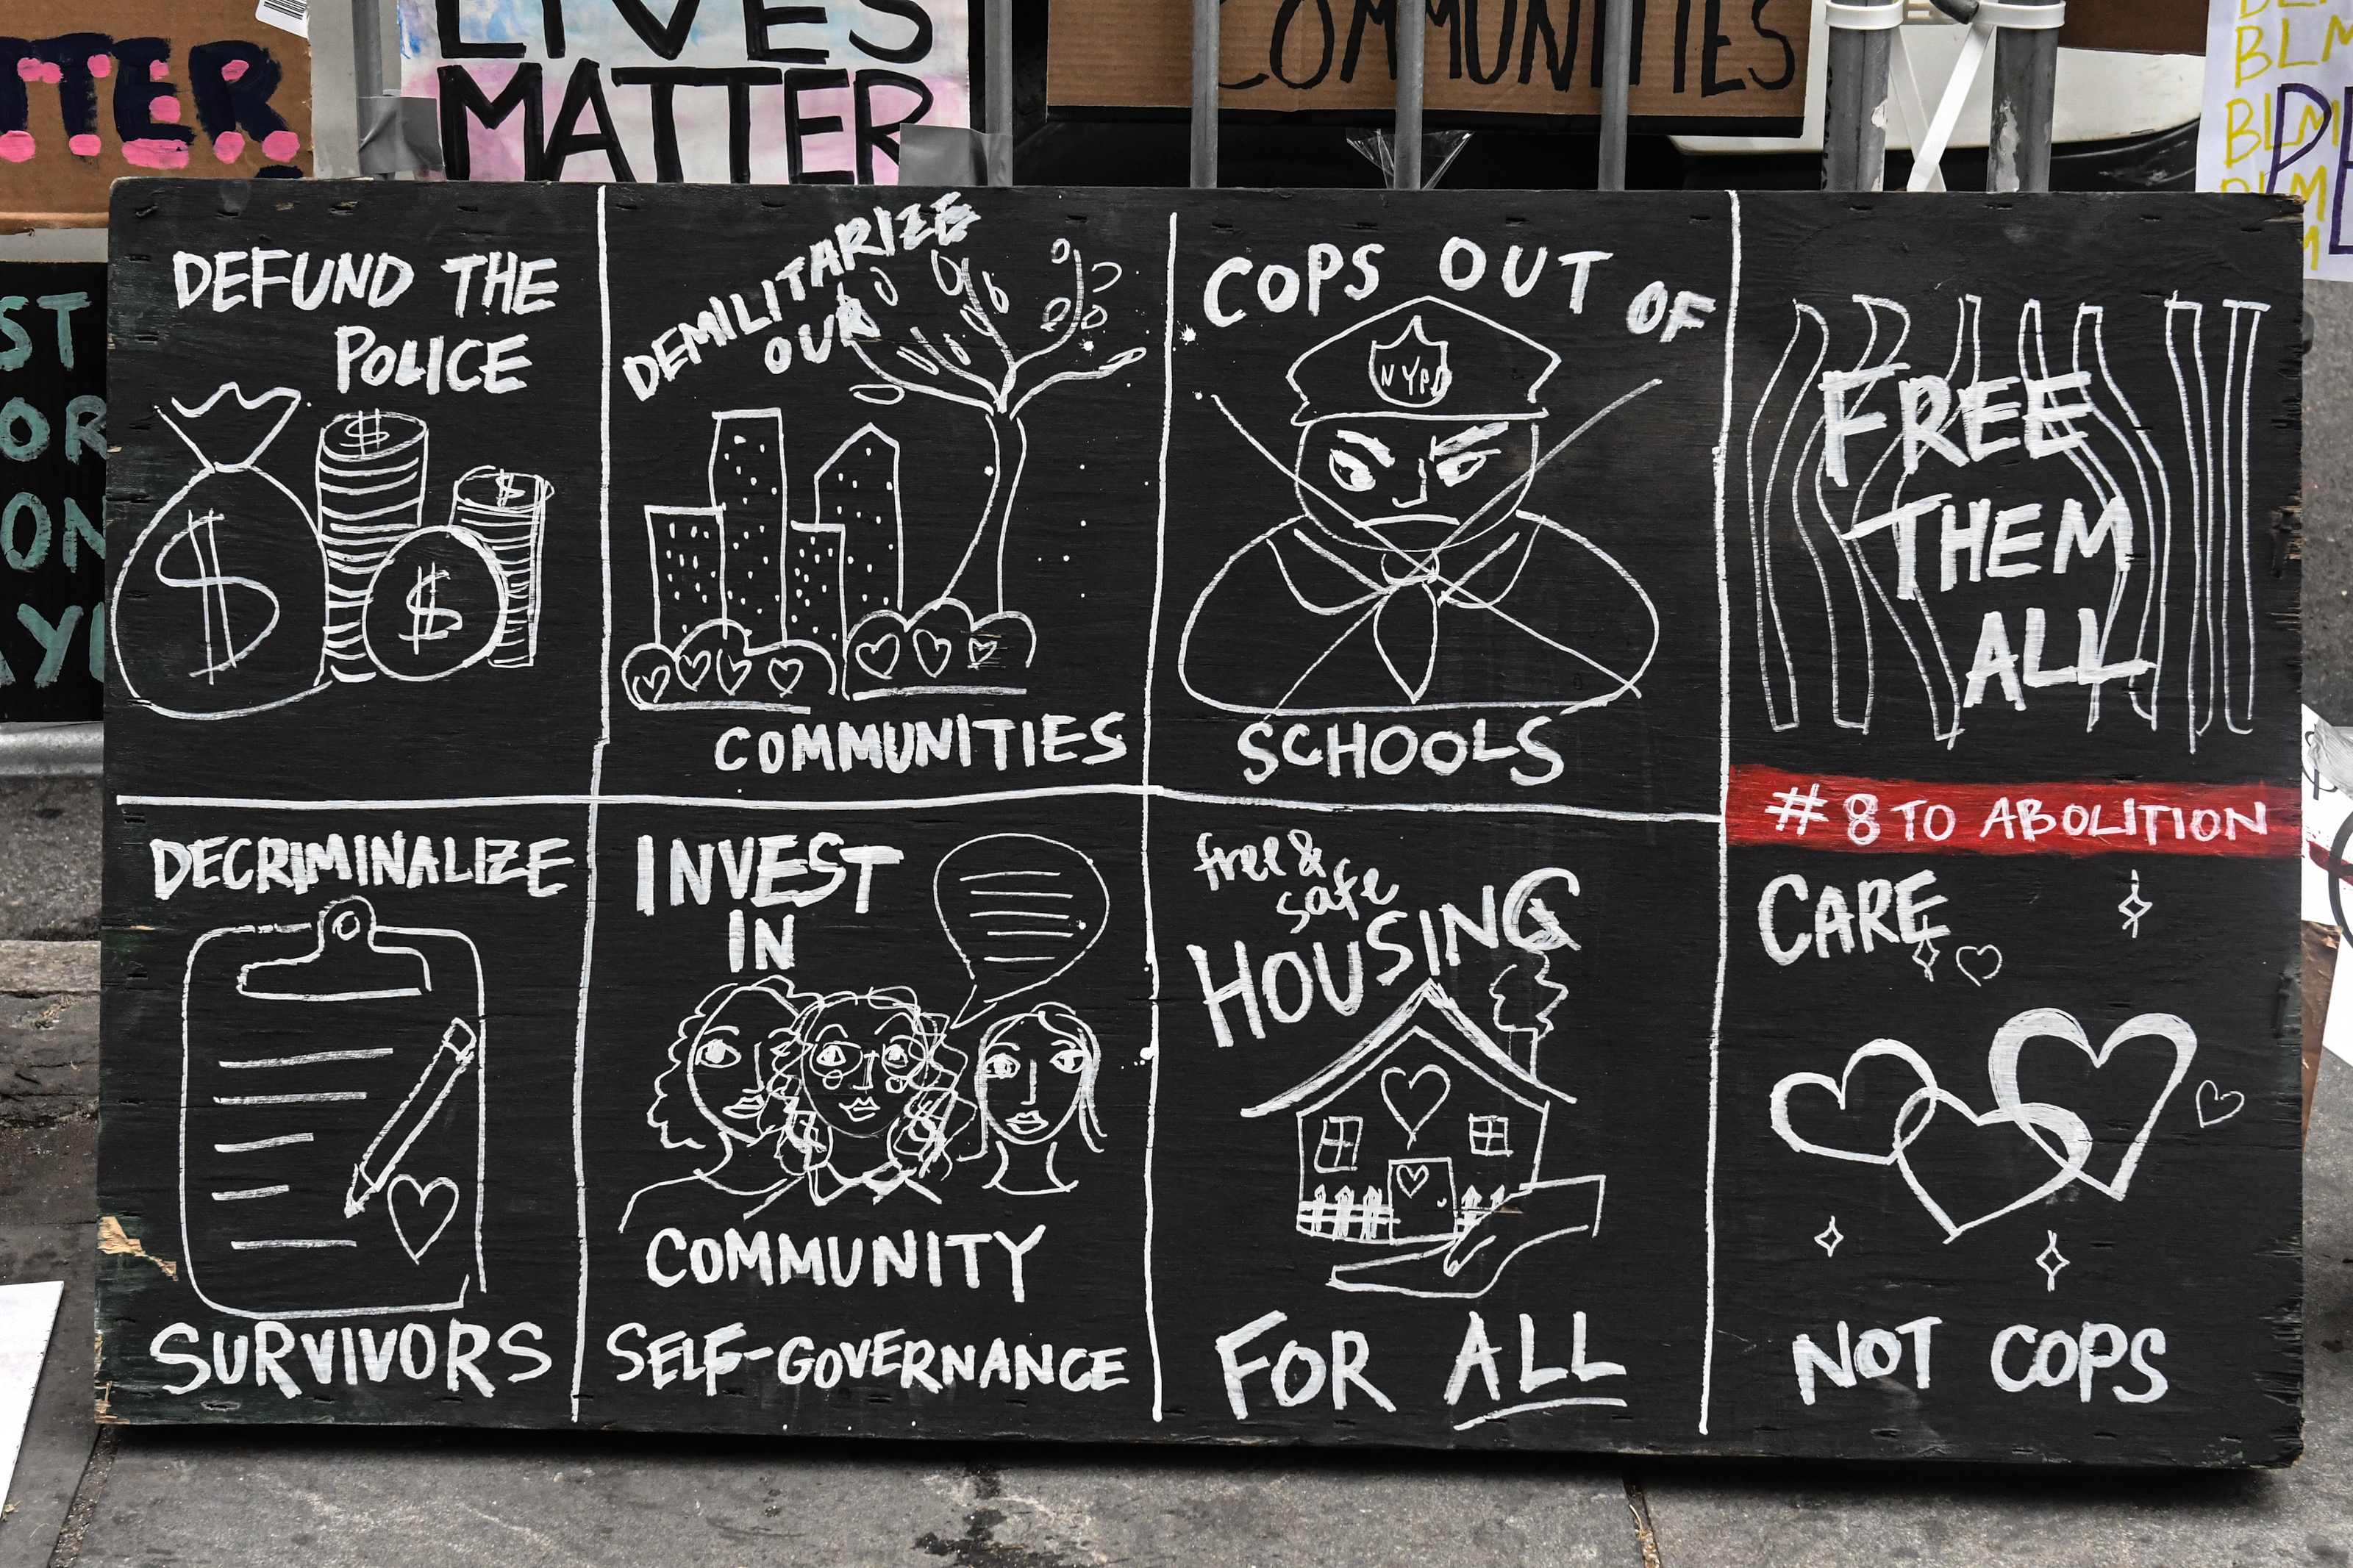 TTER
LIVES
MATTER
COMMUNITIES
BLM
BLM
BLM
ST
OR
ON
DEFUND THE
POLICE
$
$
$
$
DEMILITARIZE
OUR
COMMUNITIES
COPS OUT OF
NYPD
SCHOOLS
FREE
THEM
ALL
#8 TO ABOLITION
DECRIMINALIZE
SURVIVORS
INVEST
IN
COMMUNITY
SELF-GOVERNANCE
free &
safe
HOUSING
FOR ALL
CARE
NOT COPS